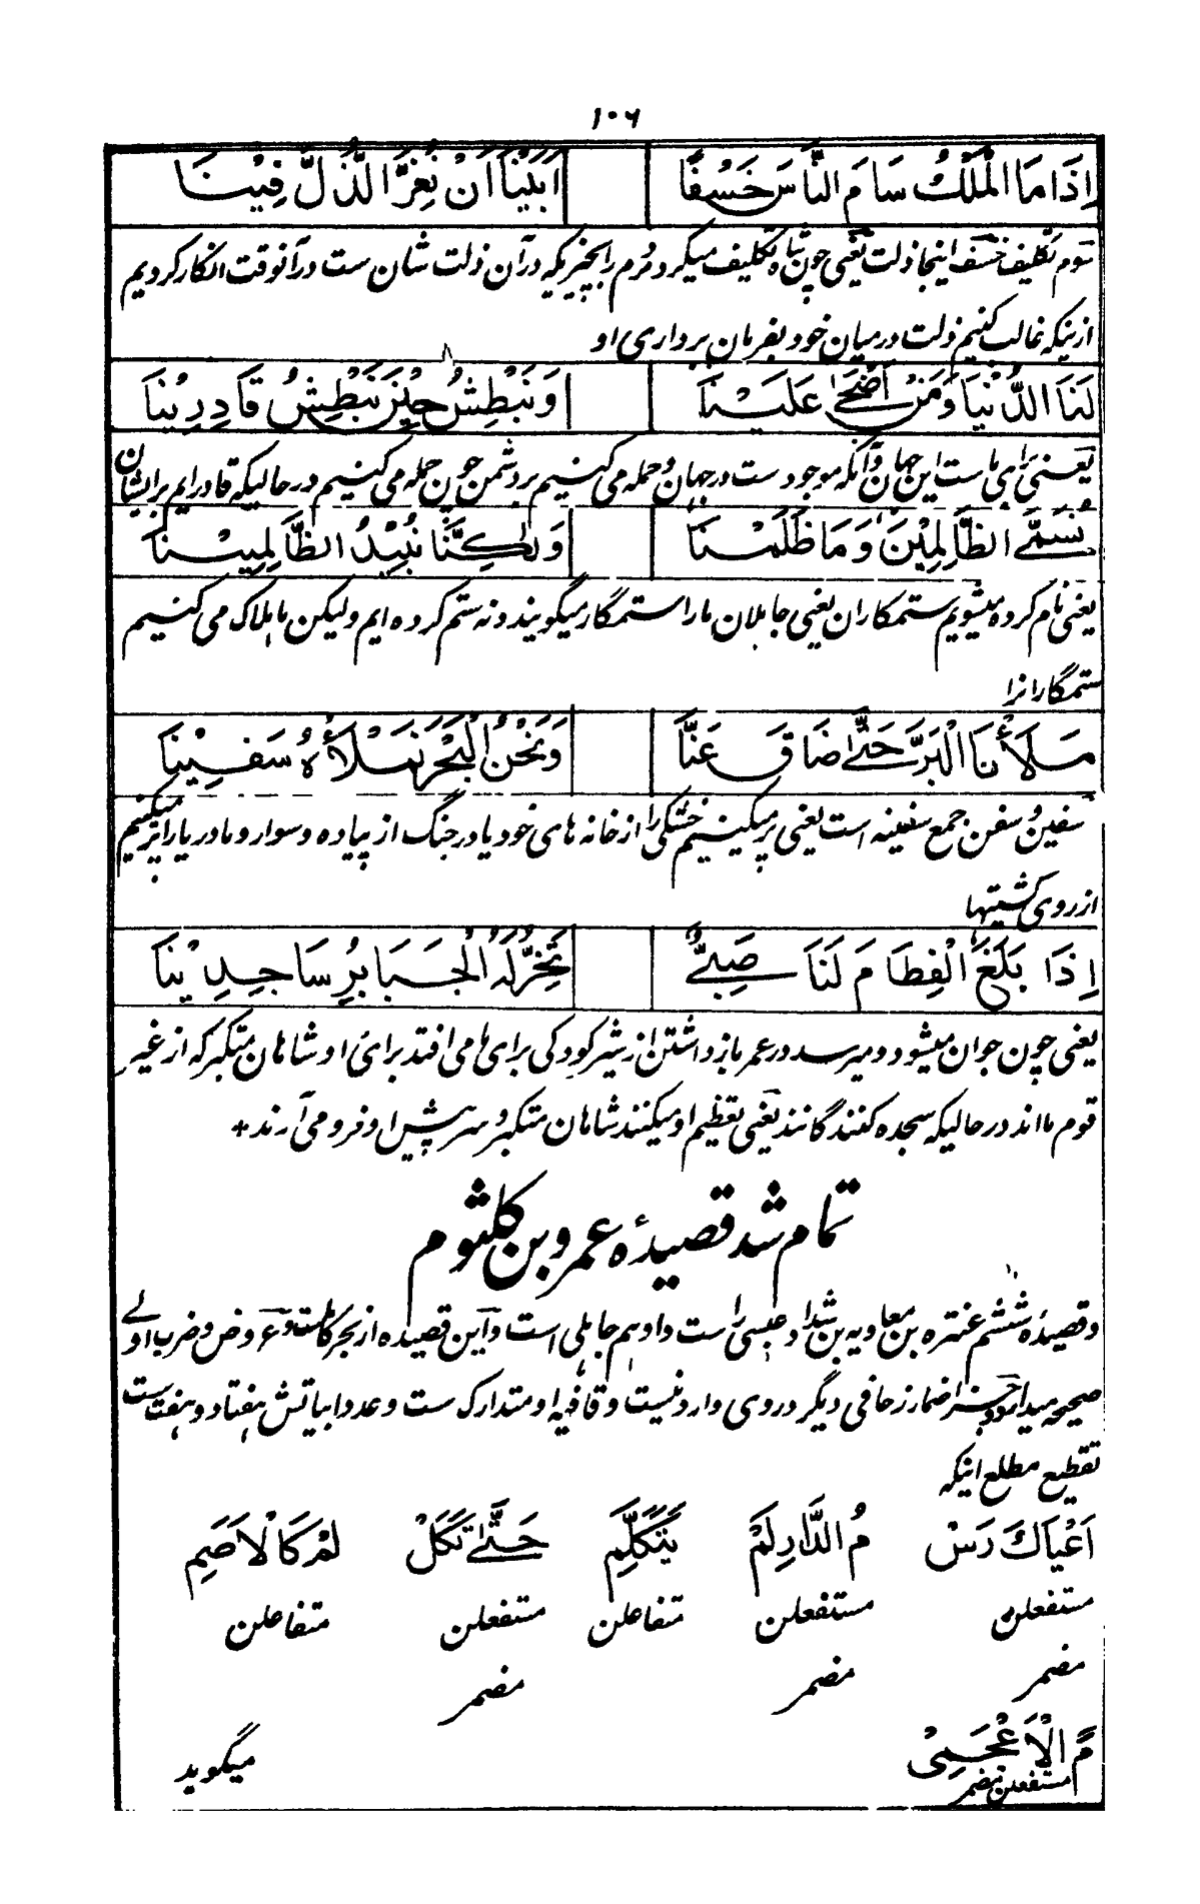 ۱۰۶
اِذَا مَا الْمَلْكُ سَامَ النَّاسَ خَسْفًا اَبَيْنَا اَنْ نُعِزَّ الذُّلَّ فِيْنَا
سَوم تکلیف خسف اینجا ذلت یعنی چون تباه تکلیف میکرد مردم را بچیزیکه در آن ذلت شان ست در آنوقت انکار کردیم
ازینکه غالب کنیم ذلت درمیان خود بفرمان برداری او
لَنَا الدُّنْيَا وَمَنْ اَضْحٰى عَلَيْنَا وَنَبْطِشُ حِيْنَ نَبْطِشُ قَادِرِيْنَا
یعنی برای ماست این جهان و آنکه موجود ست در جهان و حمله می کنیم بر دشمن چون حمله می کنیم در حالیکه قادرایم بر ایشان
نُسَمّٰى الظَّالِمِيْنَ وَمَا ظَلَمْنَا وَلٰكِنَّا نُبِيْدُ الظَّالِمِيْنَا
یعنی نام کرده میشویم ستمکاران یعنی جاهلان مارا ستمگار میگویند و نه ستم کرده ایم ولیکن ما هلاک می کنیم
ستمگارانرا
مَلَأْنَا الْبَرَّ حَتّٰى ضَاقَ عَنَّا وَنَحْنُ الْبَحْرَ نَمْلَأُهُ سَفِيْنَا
سفین و سفن جمع سفینه است یعنی پر میکنیم خشکی را از خانه های خود یا در جنگ از پیاده و سوار و ما دریا را پر میکنیم
از روی کشتیها
اِذَا بَلَغَ الْفِطَامَ لَنَا صَبِيٌّ تَخِرُّ لَهُ الْجَبَابِرُ سَاجِدِيْنَا
یعنی چون جوان میشود و میرسد در عمر باز داشتن از شیر کودکی برای ما می افتد برای او شاهان متکبر که از غیر
قوم ما اند در حالیکه سجده کنند گانند یعنی تعظیم او میکنند شاهان متکبر و سر پیش او فرو می آرند +
تمام شد قصیدهٔ عمرو بن کلثوم
و قصیدهٔ ششم عنتره بن معاویه بن شداد عبسی راست و او هم جاهلی است و این قصیده از بحر کامل ست و عروض و ضرب اولے
صحیحه میدارد و جز اضمار زحافی دیگر در وی وارد نیست و قافیه او متدارک ست و عدد ابیاتش هفتاد و هفت ست
تقطیع مطلع اینکه
اَعْيَاكَ رَسْ مُ الدَّارِلَمْ يَتَكَلَّمِ حَتّٰى تَكَلْ لَمَ كَالْاَصَمِ
مستفعلن مستفعلن متفاعلن مستفعلن متفاعلن
مضمر مضمر مضمر
مِ الْاَعْجَمِىْ میگوید
مستفعلن مضمر